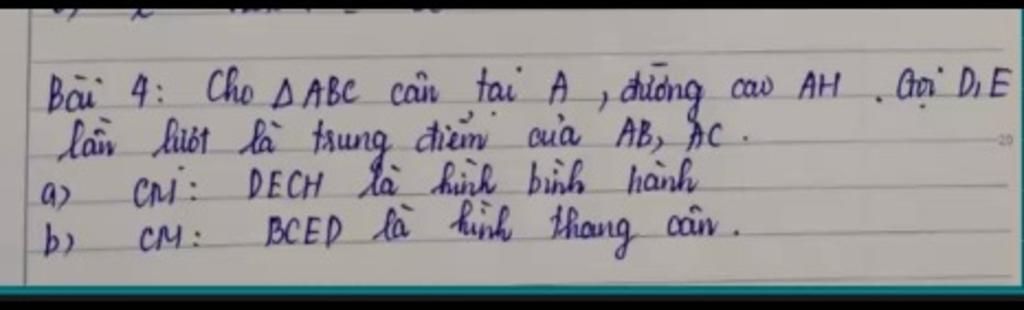 Bài 4: Cho Δ ABC cân tại A, đường cao AH. Gọi D, E
lần lượt là trung điểm của AB, AC.
a) CM: DECH là hình bình hành
b) CM: BCED là hình thang cân.
20